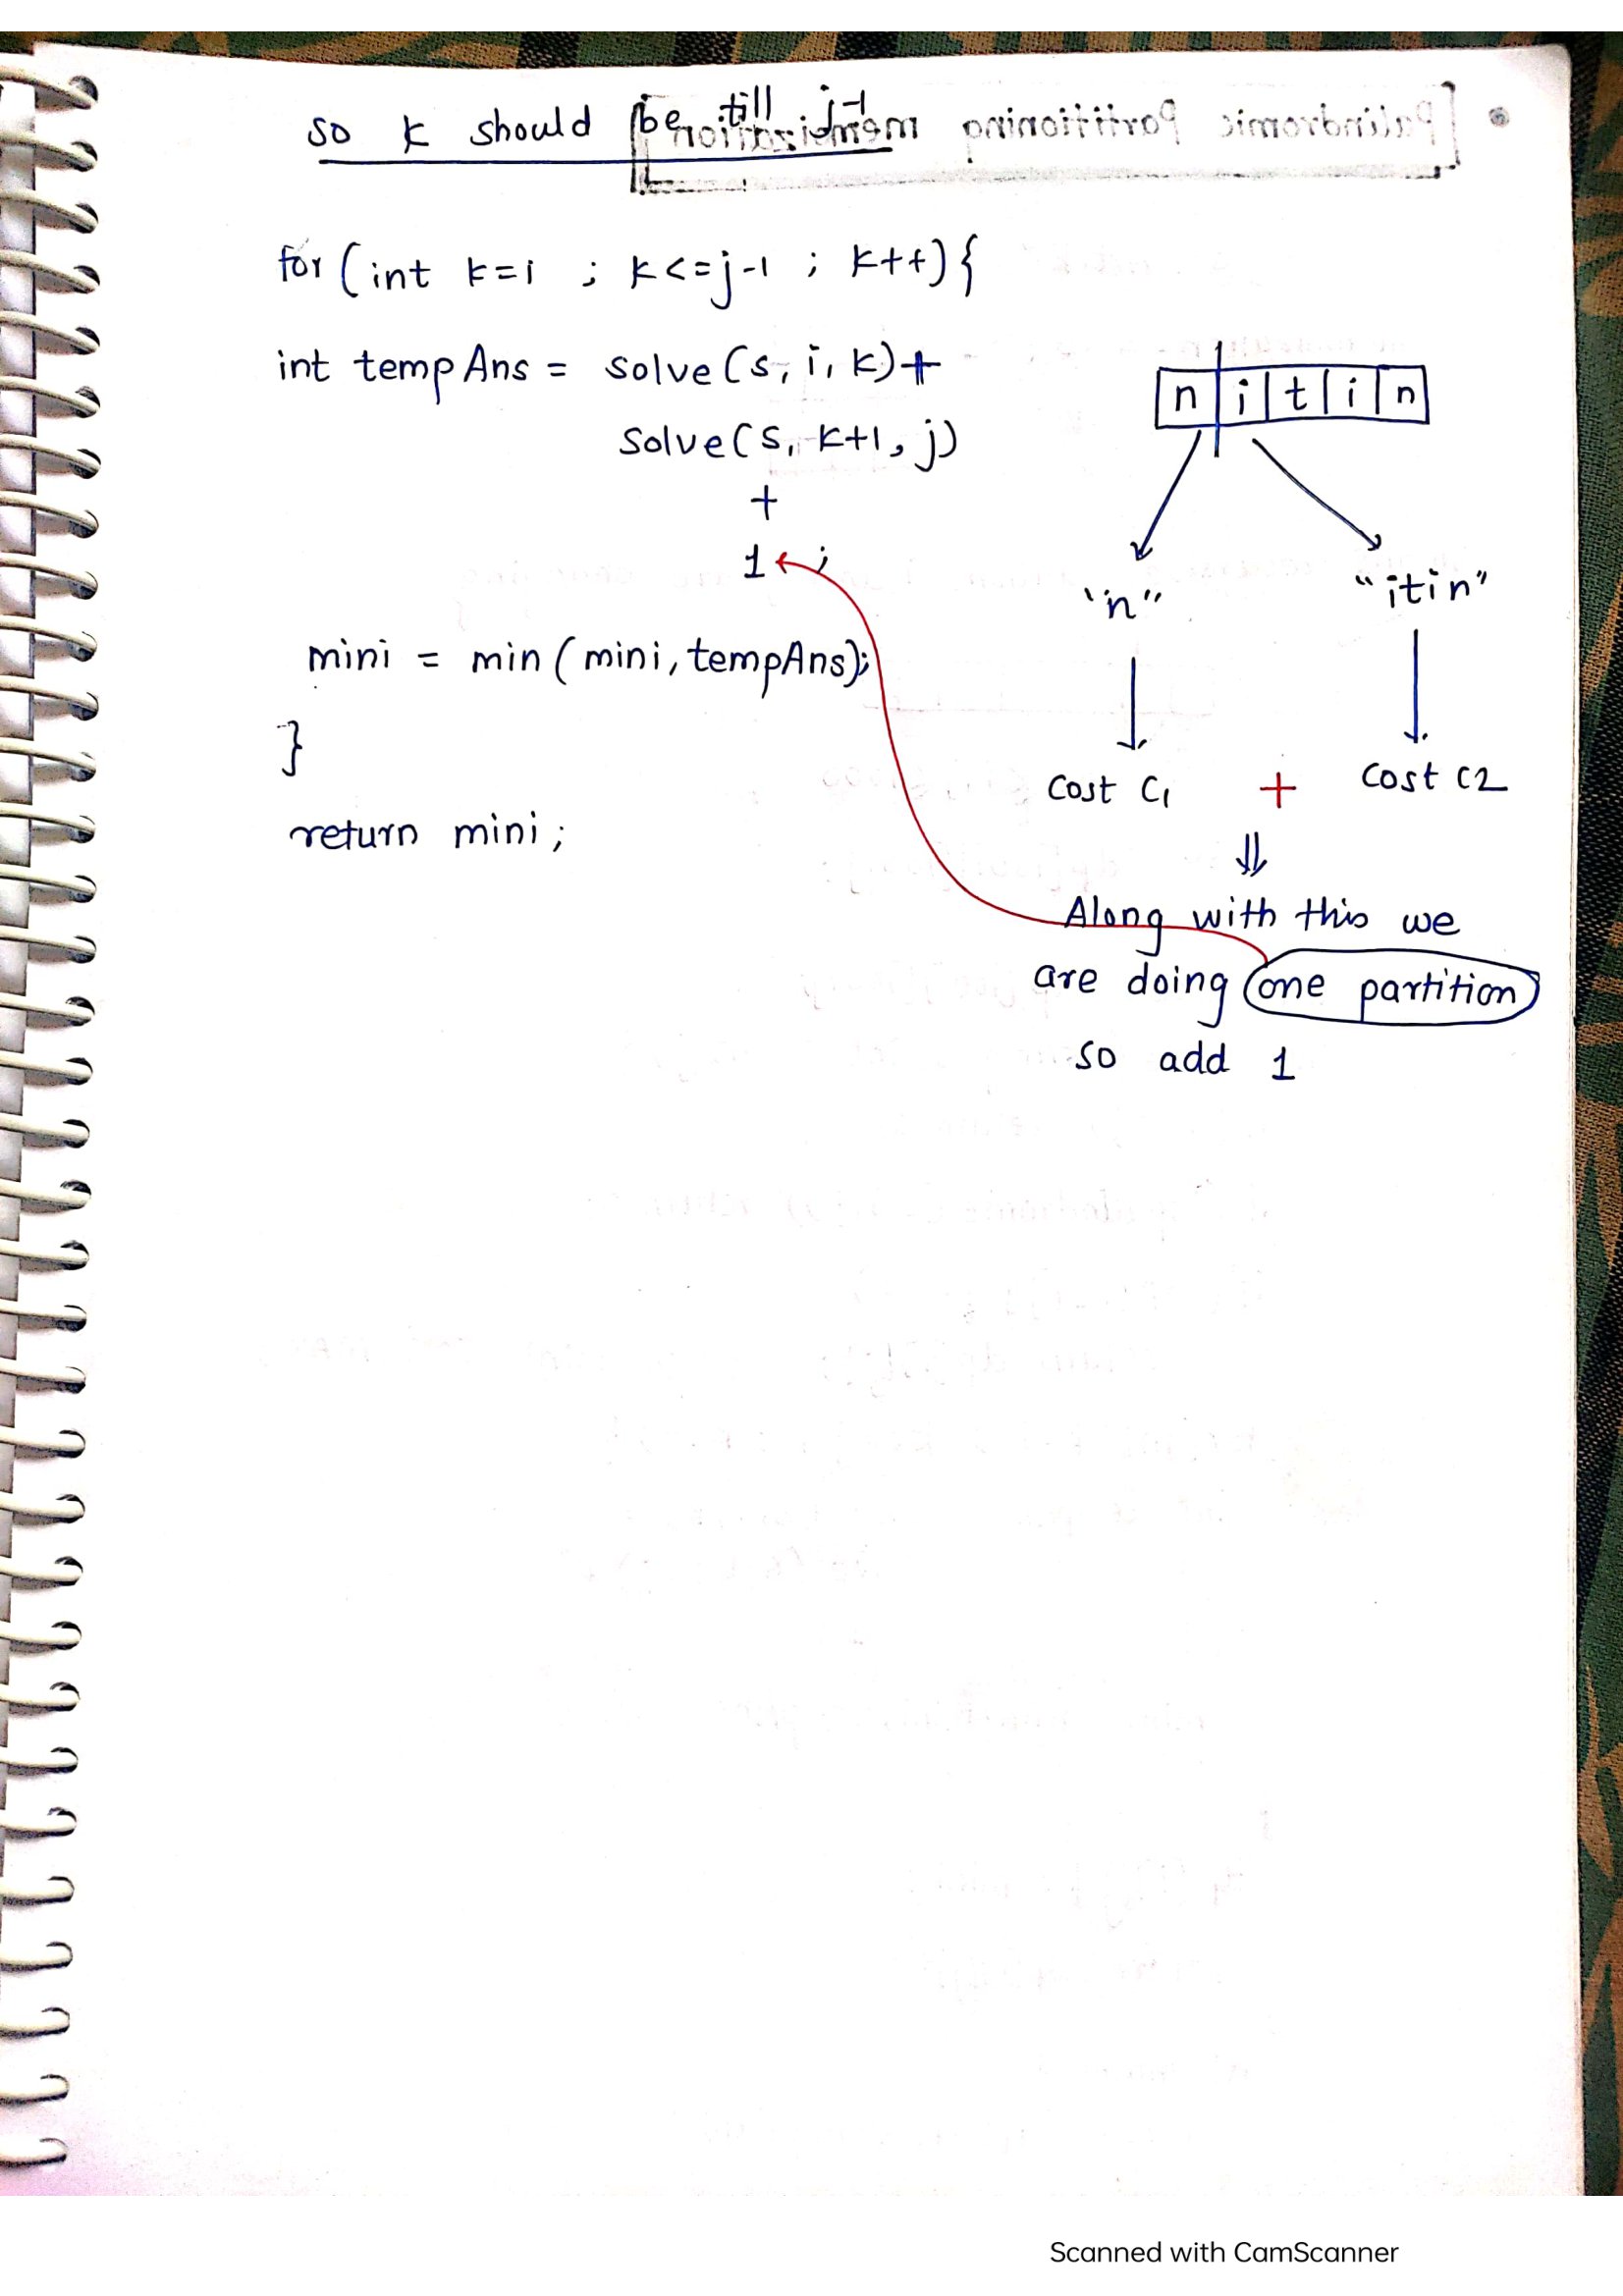 so k should be till j-1
for (int k=i ; k<=j-1 ; k++) {
int tempAns = solve(s, i, k)+
solve(s, k+1, j)
+
1 ;
mini = min(mini, tempAns);
}
return mini;
n i t i n
"n"
"itin"
Cost C1 + Cost C2
Along with this we
are doing one partition
so add 1
Scanned with CamScanner